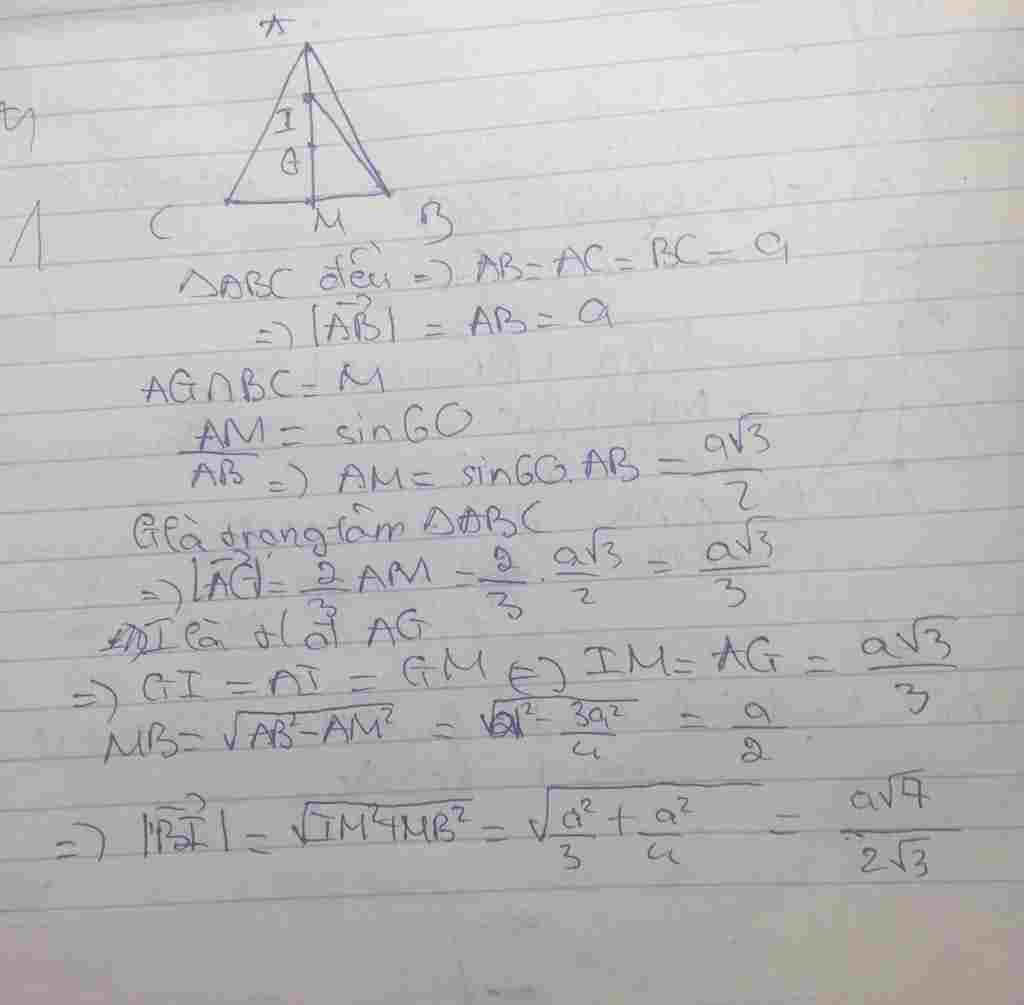 A
I
G
C M B
1
△ABC đều => AB = AC = BC = a
=> |AB→| = AB = a
AG∩BC = M
AM/AB = sin60
=> AM = sin60.AB = a√3/2
G là trọng tâm △ABC
=> |AG→| = 2/3 AM = 2/3 . a√3/2 = a√3/3
I là t/đ AG
=> GI = AI = GM => IM = AG = a√3/3
MB = √(AB² - AM²) = √(a² - 3a²/4) = a/2
=> |BI→| = √(IM² + MB²) = √(a²/3 + a²/4) = a√7/2√3